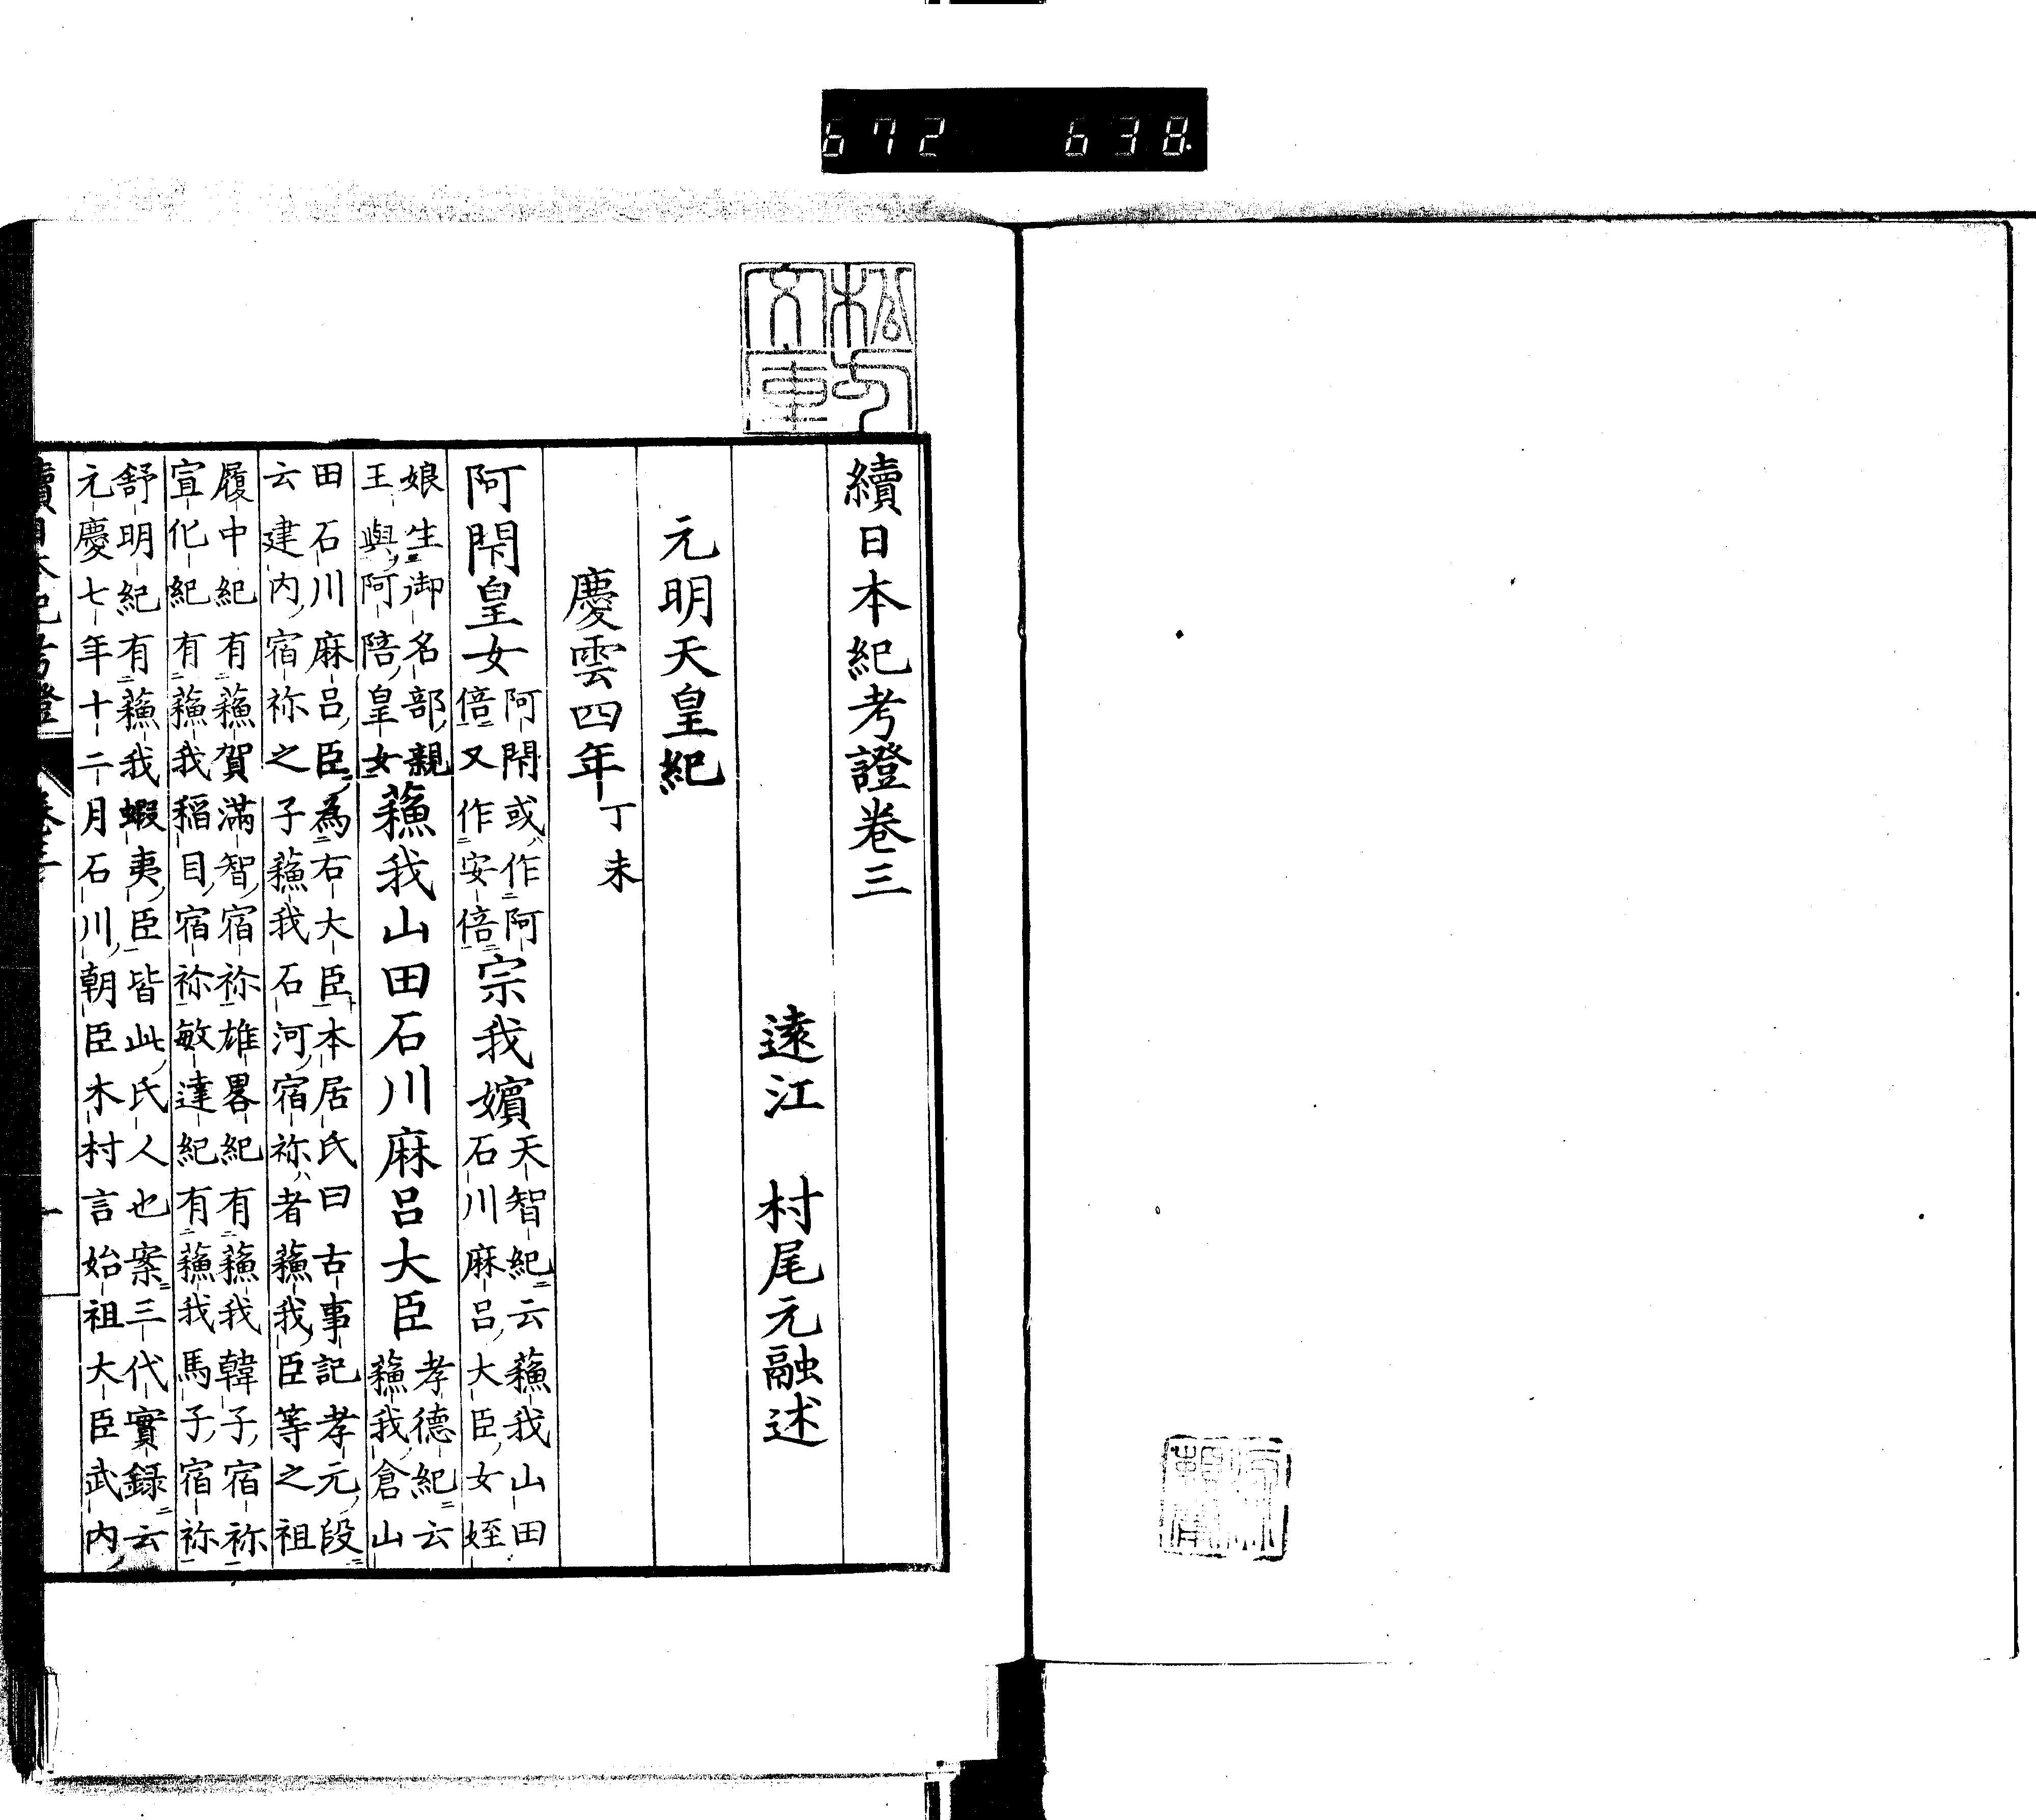 672 638
松岡文庫
續日本紀考證卷三
遠江 村尾元融述
元明天皇紀
慶雲四年丁未
阿閇皇女阿閇或作阿倍又作安倍宗我嬪天智紀云蘓我山田石川麻呂大臣女姪
娘生御名部親王與阿陪皇女蘓我山田石川麻呂大臣孝德紀云蘓我倉山
田石川麻呂臣爲右大臣本居氏曰古事記孝元段
云建内宿祢之子蘓我石河宿祢者蘓我臣等之祖
履中紀有蘓賀滿智宿祢雄畧紀有蘓我韓子宿祢
宣化紀有蘓我稲目宿祢敏達紀有蘓我馬子宿祢
舒明紀有蘓我蝦夷臣皆此氏人也案三代實録云
元慶七年十二月石川朝臣木村言始祖大臣武内
續日本紀考證 卷三 一